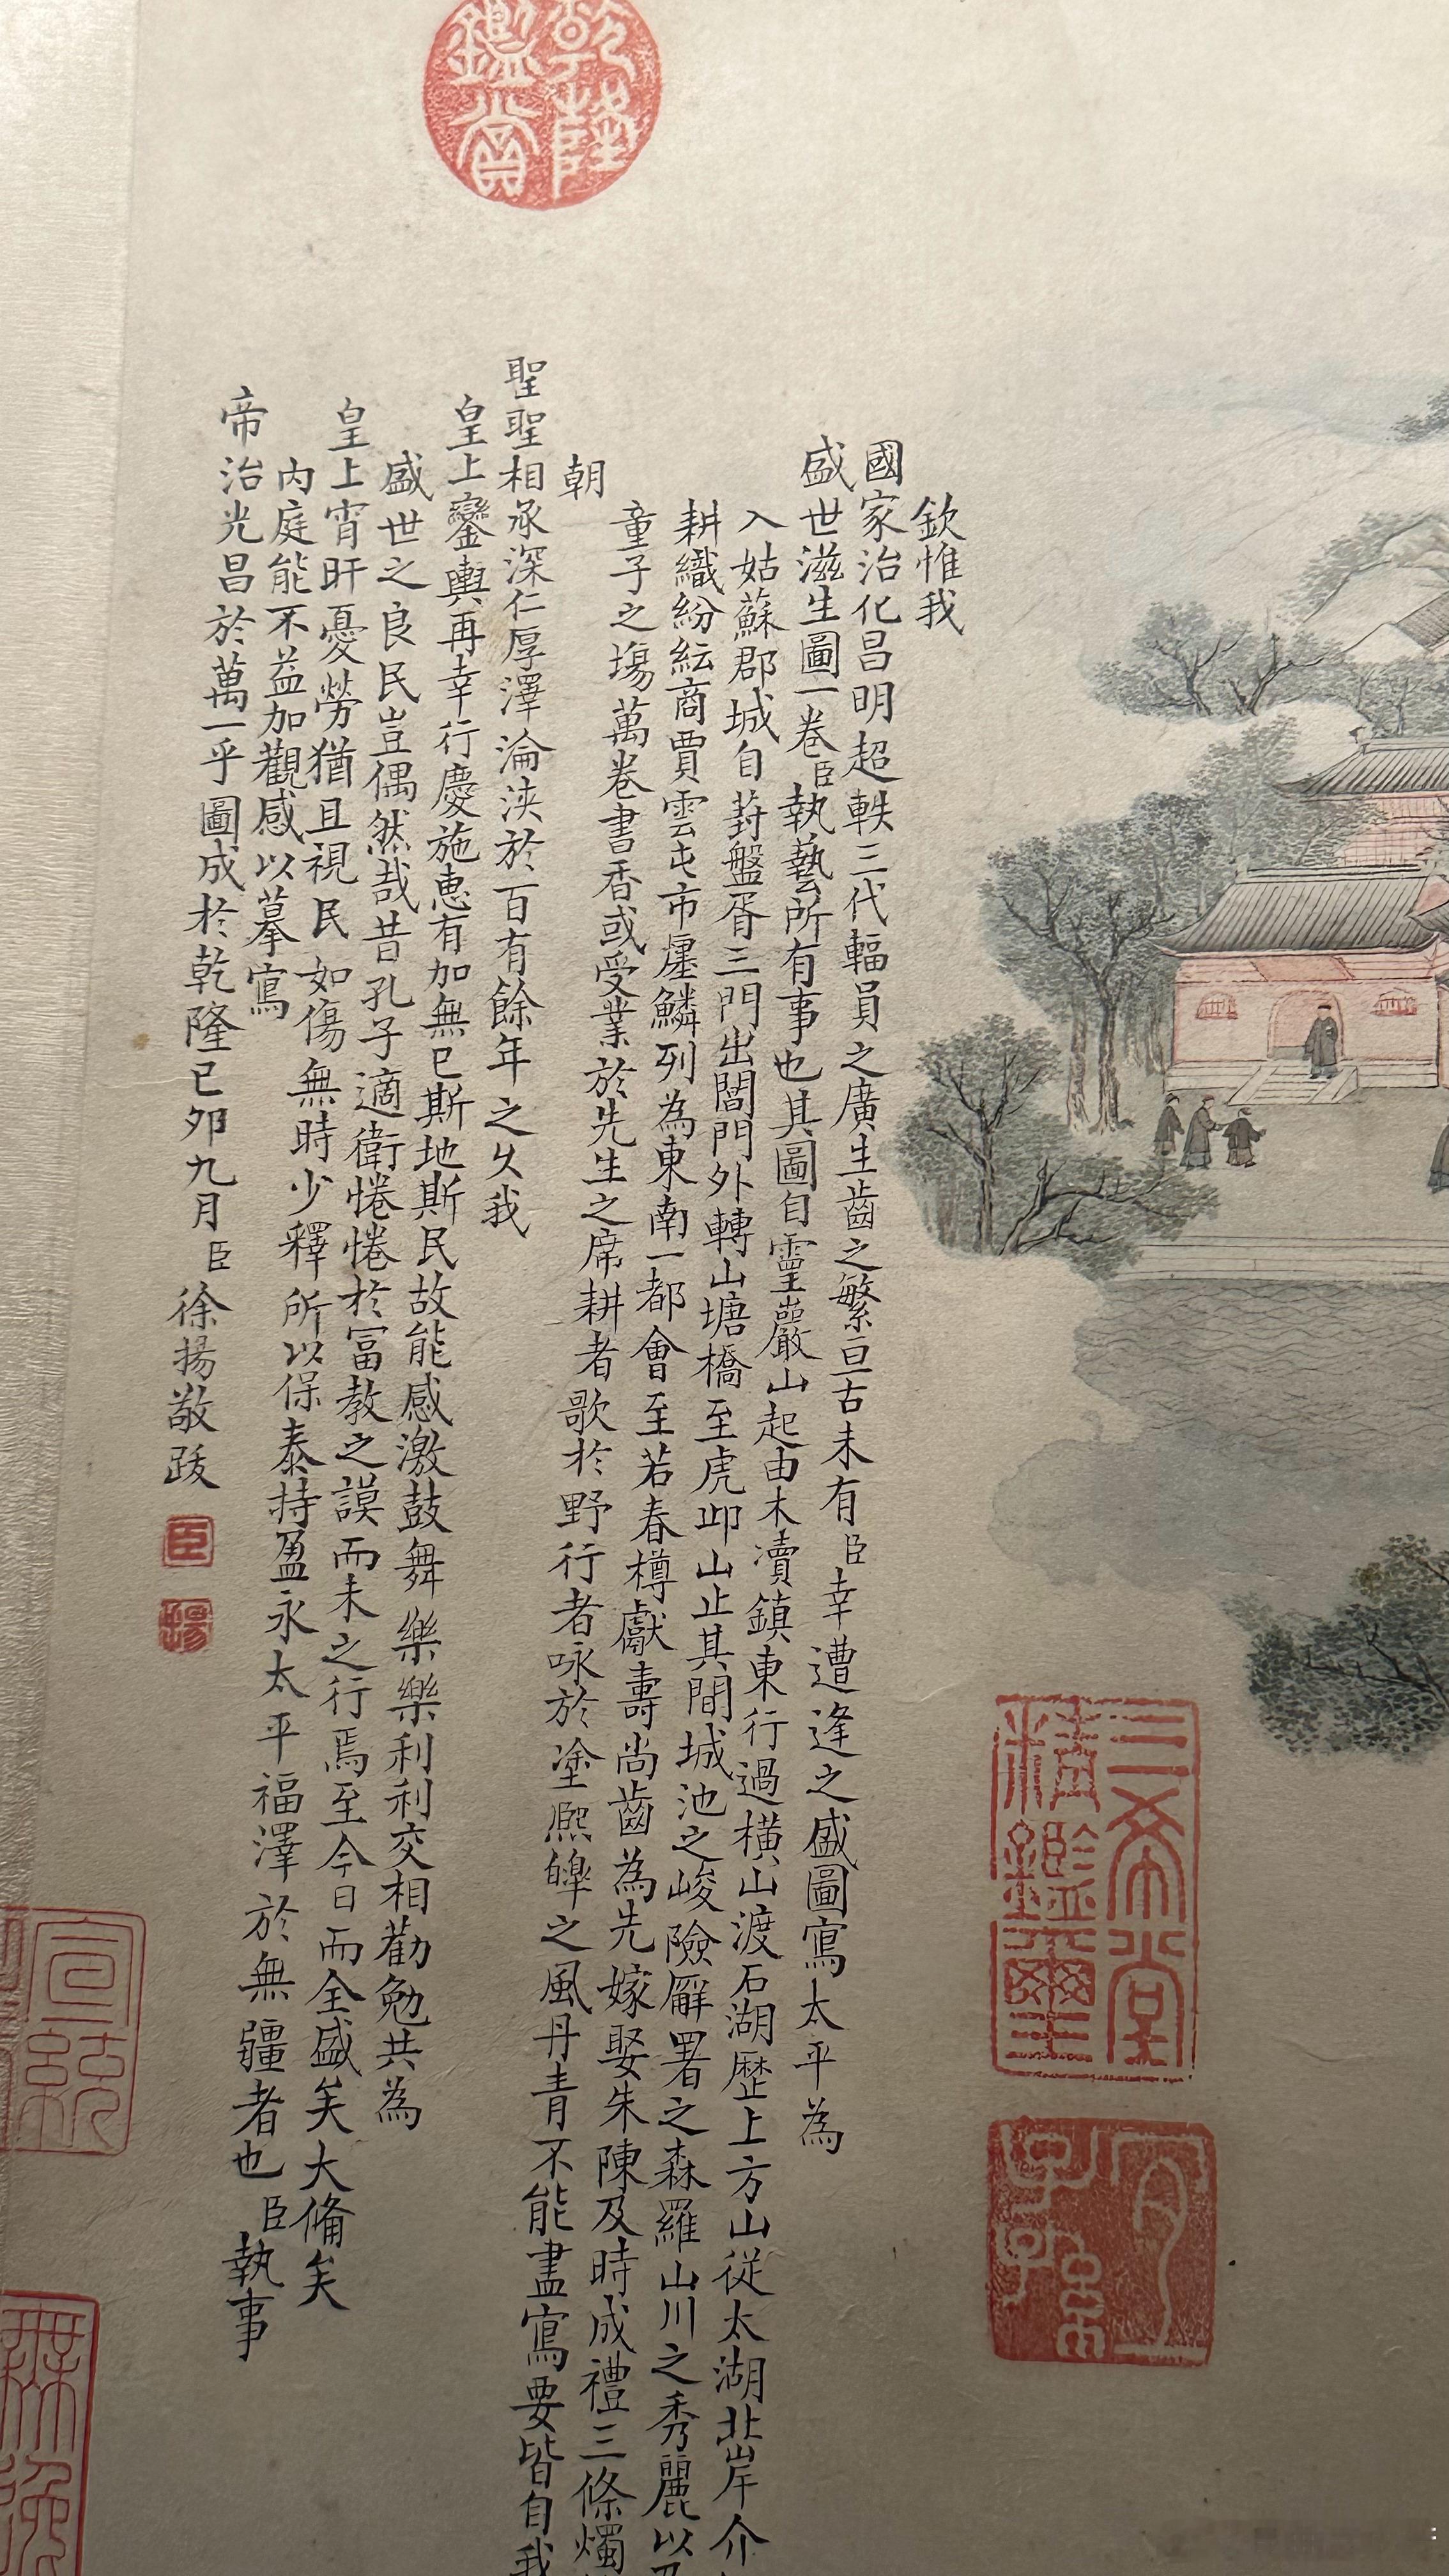 欽惟我
國家治化昌明超軼三代輻員之廣生齒之繁亘古未有臣幸遭逢之盛圖寫太平為
盛世滋生圖一卷臣執藝所有事也其圖自靈巖山起由木瀆鎮東行過橫山渡石湖歷上方山從太湖北岸介
入姑蘇郡城自葑盤胥三門出閶門外轉山塘橋至虎邱山止其間城池之峻險廨署之森羅山川之秀麗以及
耕織紛紜商賈雲屯市廛鱗列為東南一都會至若春樽獻壽尚齒為先嫁娶朱陳及時成禮三條燭
童子之塲萬卷書香或受業於先生之席耕者歌於野行者咏於塗熈皥之風丹青不能盡寫要皆自我
朝
聖聖相承深仁厚澤淪浹於百有餘年之久我
皇上鑾輿再幸行慶施惠有加無已斯地斯民故能感激鼓舞樂樂利利交相勸勉共為
盛世之良民豈偶然哉昔孔子適衛惓惓於富教之謨而未之行焉至今日而全盛矣大備矣
皇上宵旰憂勞猶且視民如傷無時少釋所以保泰持盈永太平福澤於無疆者也臣執事
內庭能不益加觀感以摹寫
帝治光昌於萬一乎圖成於乾隆己卯九月臣徐揚敬跋
臣
揚
乾隆鑑賞
三希堂精鑑璽
宜子孫
宣統
無逸